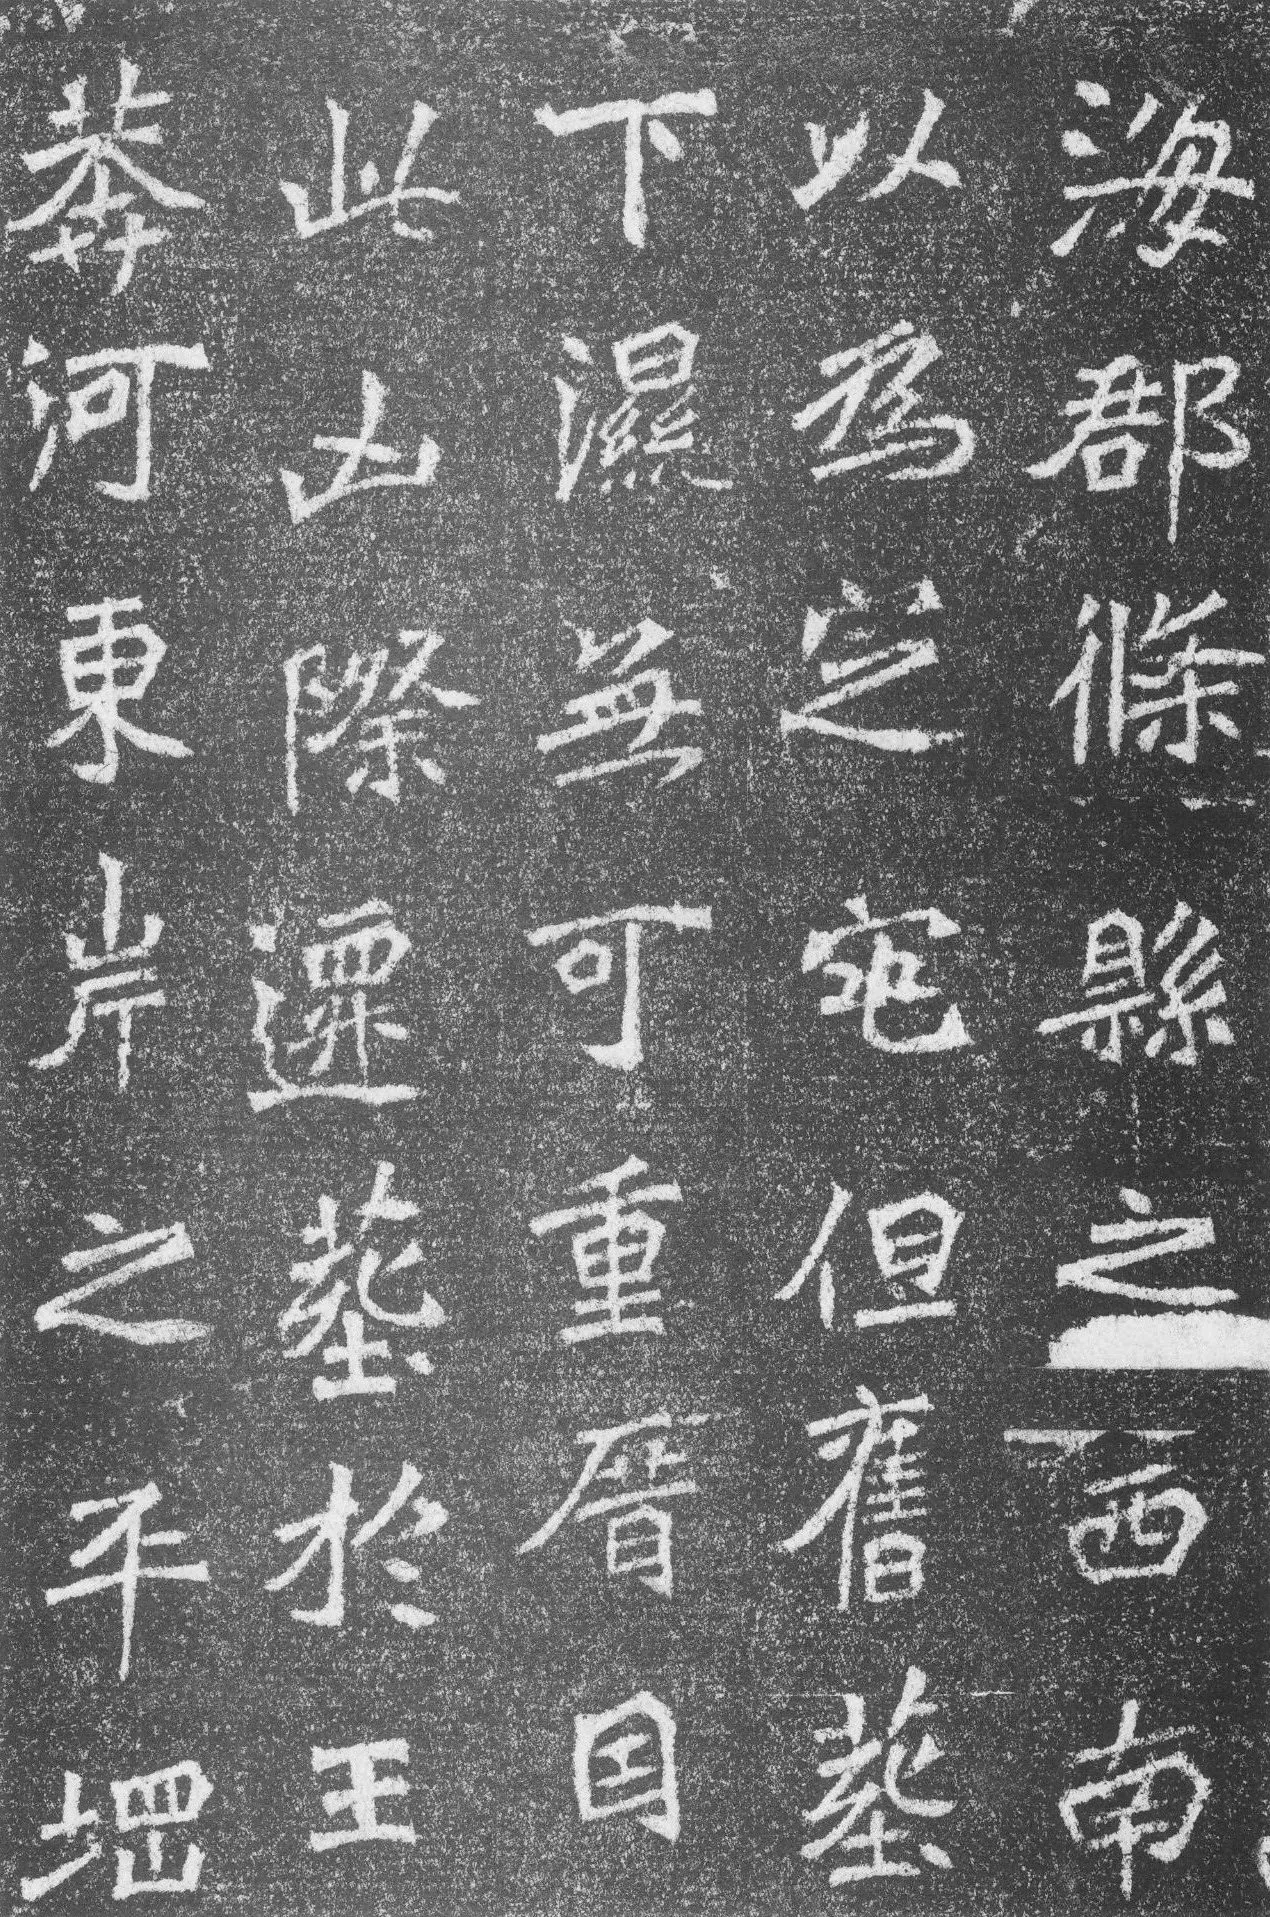 海郡條縣之西南
以為定宅但舊塟
下濕無可重厝因
此凶際遷塟於王
莽河東岸之平堈